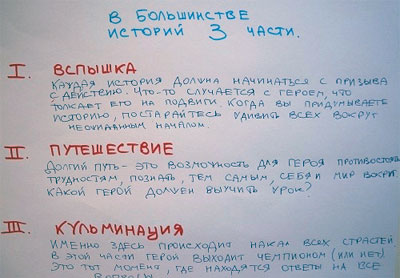 В БОЛЬШИНСТВЕ
ИСТОРИЙ 3 ЧАСТИ.
I. ВСПЫШКА
КАЖДАЯ ИСТОРИЯ ДОЛЖНА НАЧИНАТЬСЯ С ПРИЗЫВА
К ДЕЙСТВИЮ. ЧТО-ТО СЛУЧАЕТСЯ С ГЕРОЕМ, ЧТО
ТОЛКАЕТ ЕГО НА ПОДВИГИ. КОГДА ВЫ ПРИДУМЫВАЕТЕ
ИСТОРИЮ, ПОСТАРАЙТЕСЬ УДИВИТЬ ВСЕХ ВОКРУГ
НЕОЖИДАННЫМ НАЧАЛОМ.
II. ПУТЕШЕСТВИЕ
ДОЛГИЙ ПУТЬ - ЭТО ВОЗМОЖНОСТЬ ДЛЯ ГЕРОЯ ПРОТИВОСТОЯ
ТРУДНОСТЯМ, ПОЗНАТЬ, ТЕМ САМЫМ, СЕБЯ И МИР ВОКРУГ.
КАКОЙ ГЕРОЙ ДОЛЖЕН ВЫУЧИТЬ УРОК?
III. КУЛЬМИНАЦИЯ
ИМЕННО ЗДЕСЬ ПРОИСХОДИТ НАКАЛ ВСЕХ СТРАСТЕЙ
В ЭТОЙ ЧАСТИ ГЕРОЙ ВЫХОДИТ ЧЕМПИОНОМ (ИЛИ НЕТ)
ЭТО ТОТ МОМЕНТ, ГДЕ НАХОДЯТСЯ ОТВЕТЫ НА ВСЕ